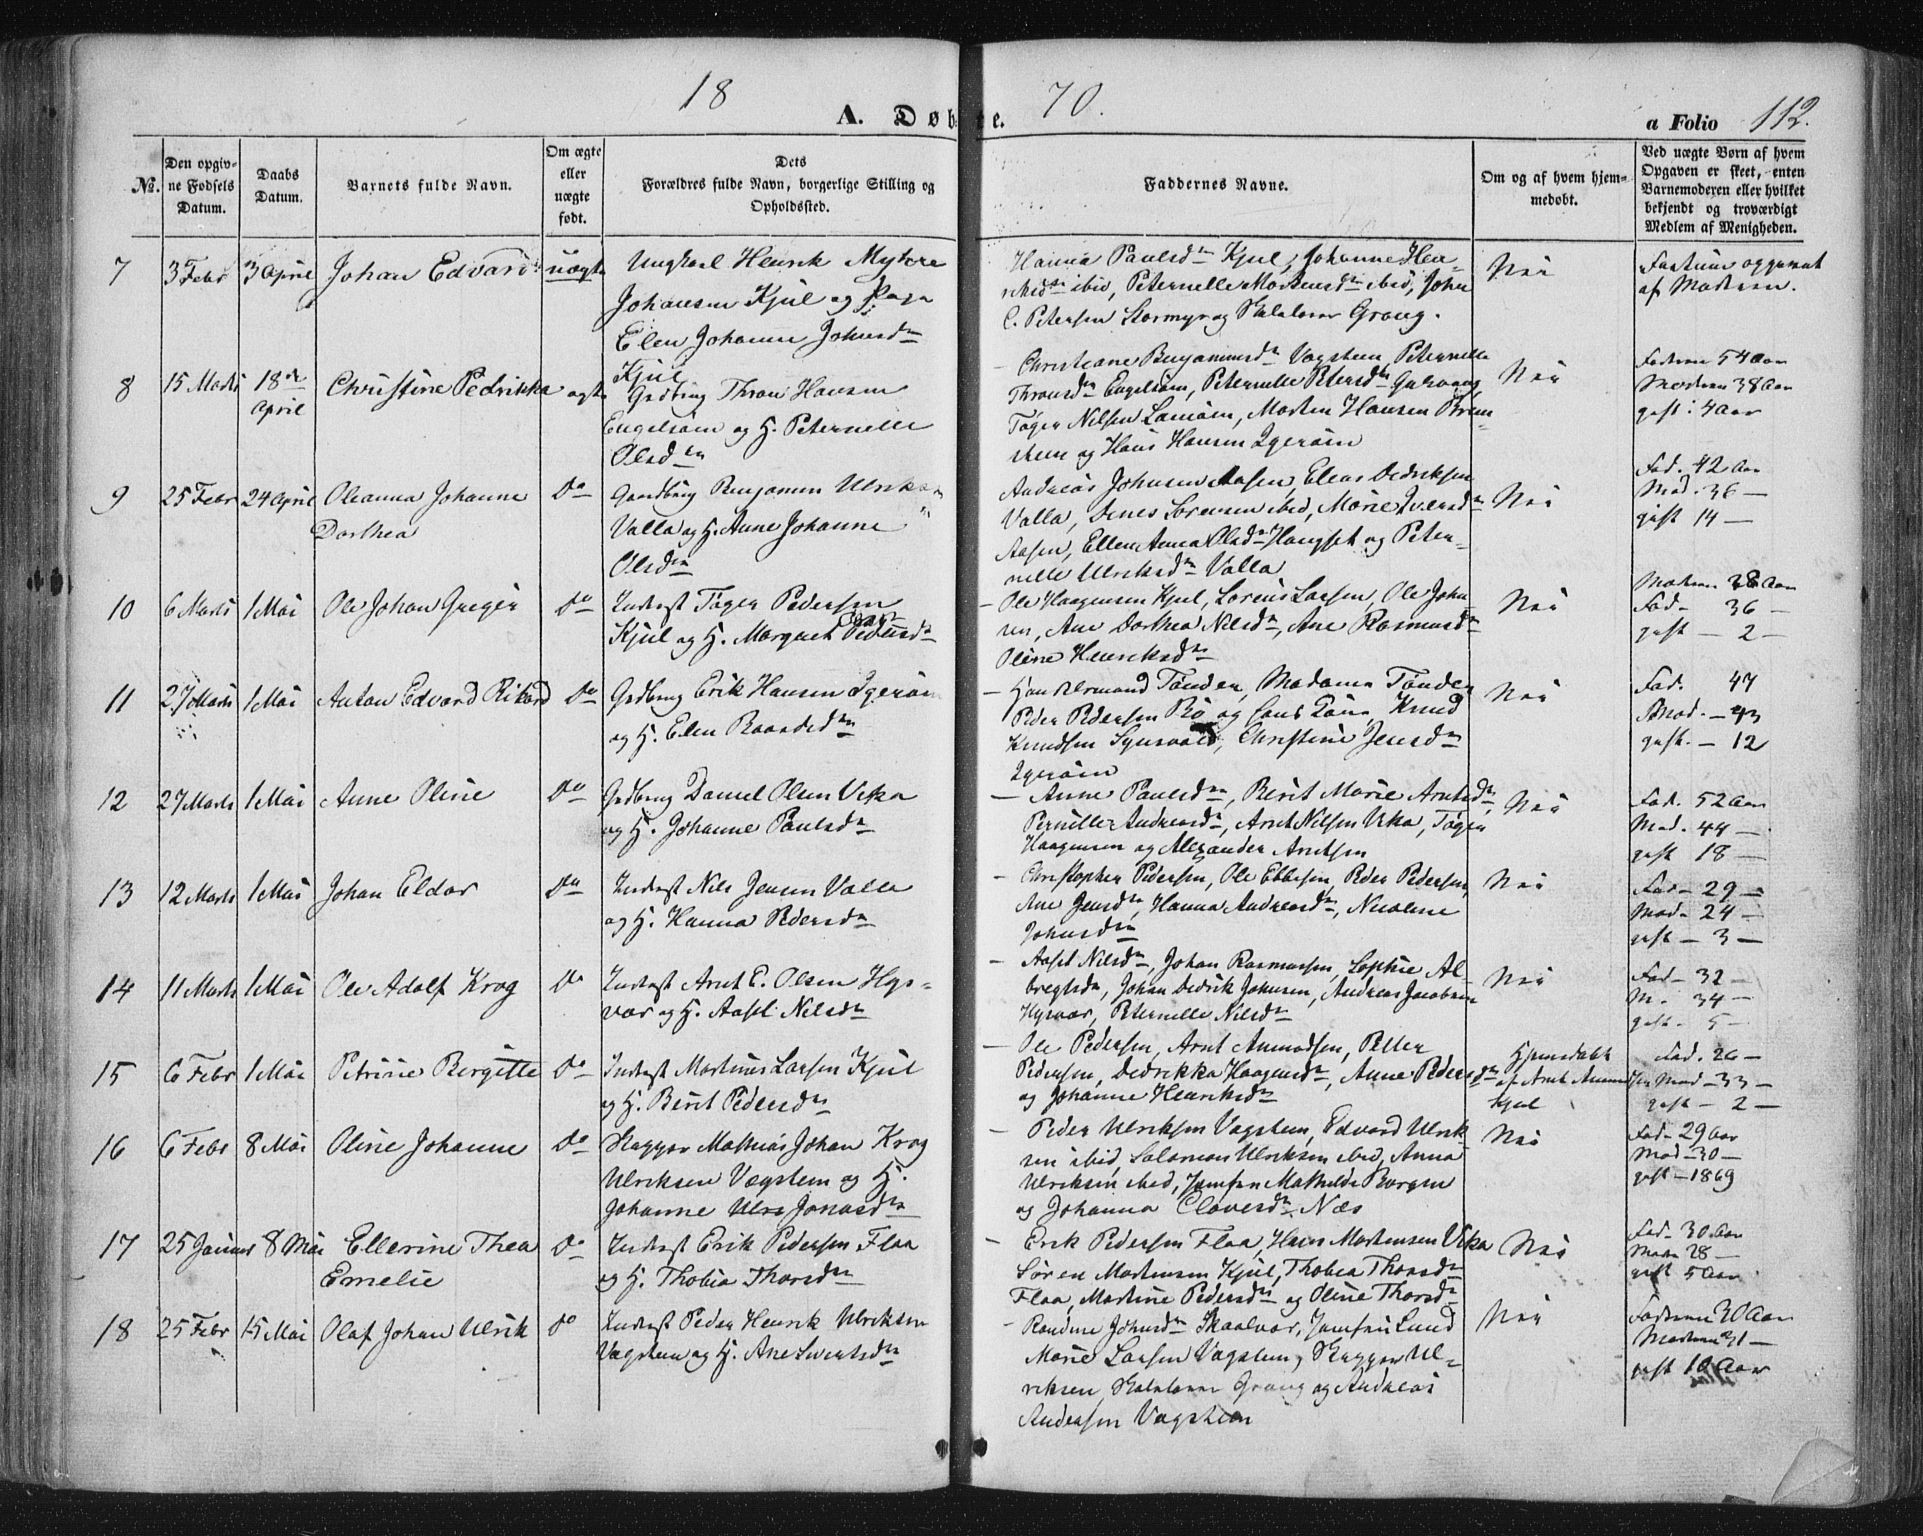 18 70.
A. Døbte.
a Folio 112.
No.
Den opgiv-
ne Fødsels
Datum.
Daabs
Datum.
Barnets fulde Navn.
Om ægte
eller
uægte
født.
Dets
Forældres fulde Navn, borgerlige Stilling og
Opholdssted.
Faddernes Navne.
Om og af hvem hjem-
medøbt.
Ved uægte Børn af hvem
Opgaven er skeet, enten
Barnemoderen eller hvilket
bekjendt og troværdigt
Medlem af Menigheden.
7 3 Febr 3 April Johan Edvard uægte Ungkarl Henrik
Johansen Kjul og Pige
Elen Johanne Johnsdn
Kjul
Hanna Paulsdn Kjul, Johanne Hen-
riksdn ibid, Peternelle Mortensdn ibid, John
C. Petersen Stormyr og Grong.
Nei
opgivet
af Moderen.
8 15 Marts 18de April Christine Pedrikka ægte Gdbrug Thron Hansen
Engelsøen og H. Peternelle
Olsdn
Christiane Benjaminsdn Vagstein, Peternelle
Thronsdn Engelsøen, Peternelle Petersdn
Tøger Nilsen Lamøen, Morten Hansen
og Hans Hansen Igerøen
Nei
Faderen 54 Aar
Moderen 38 Aar
gift: 4 Aar
9 25 Febr 24 April Oleanna Johanne
Dorthea
Do Gaardbrug Benjamin Ulriksen
Valla og H. Anne Johanne
Olsdn
Andreas Johnsen Aasen, Elias Dedriksen
Valla, Sørensen ibid, Marie Iversdn
Aasen, Ellen Anna Olsdn Hongset og Peter-
nelle Ulriksdn Valla
Nei
Fad. 42 Aar
Mod. 36 —
gift 14 —
10 6 Marts 1 Mai Ole Johan Greger Do Inderst Tøger Pedersen
Kjul og H. Margaret Pedersdn
— Ole Haagensen Kjul, Lorens Larsen, Ole John-
sen, Ane Dorthea Nilsdn, Ane Rasmusdn
Oline Henriksdn
Nei
Moderen 38 Aar
Fad- 36 —
gift — 2 —
11 27 Marts 1 Mai Anton Edvard Rikard Do Gdbrug Erik Hansen Igerøen
og H. Elen Baardsdn
— Tønder, Madame Tønder
Peder Pedersen Bø og Knud
Knudsen, Christine Jensdn
Igerøen
Nei
Fad. 47
Mod. — 43
gift. — 12
12 27 Marts 1 Mai Anne Oline Do Gdbrug Daniel Olsen Vika
og H. Johanne Paulsdn
— Anne Paulsdn, Berit Marie Arntsdn,
Pernille Andreasdn, Arnt Nilsen Vika, Tøger
Haagensen og Alexander Arntsen
Nei
Fad. 52 Aar
Mod. 44 —
gift 18 —
13 12 Marts 1 Mai Johan Eldor Do Inderst Nils Jensen Valla
og H. Hanna Pedersdn
— Christopher Pedersen, Ole Ebbesen, Peder Pedersen,
Ane Jensdn, Hanna Andreasdn, Nicoline
Johnsdn
Nei
Fad — 29 —
Mod — 24 —
gift — 3 —
14 11 Marts 1 Mai Ole Adolf Krog Do Inderst Arnt E. Olsen Hys-
vær og H. Aasel Nilsdn
— Aasel Nilsdn, Johan Rasmussen, Sophie Al-
bregtsdn, Johan Dedrik Johnsen, Andreas Jacobsen
Hysvær, Peternelle Nilsdn
Nei
Fad — 32 —
M. 34 —
gift. 5 —
15 6 Febr 1 Mai Petrine Bergitte Do Inderst Martinus Larsen Kjul
og H. Berit Pedersdn
— Ole Pedersen, Arnt Amundsen, Petter
Pedersen, Dedrikka Haagensdn, Anne Pedersdn
og Johanne Henriksdn
Hjemmedøbt
af Arnt Amundsen
Kjul
Fad. 26 —
Mod — 33 —
gift — 2 —
16 6 Febr 8 Mai Oline Johanne Do Skipper Mathias Johan Krog
Ulriksen Vægstein og H.
Johanne Jonasdn
— Peder Ulriksen Vagstein, Edvard Ulrik-
sen ibid, Salamon Ulriksen ibid, Anna
Ulriksen ibid, Jomfru Mathilde Borgen
og Johanna Næs
Nei
Fad — 29 Aar
Mod — 30 —
gift — 1869
17 25 Januar 8 Mai Ellerine Thea
Emelie
Do Inderst Erik Pedersen Flaa
og H. Thobia Thorsdn
— Erik Pedersen Flaa, Hans Mortensen Vika
Søren Mortensen Kjul, Thobia Thorsdn
Flaa, Martine Pedersdn og Oline Thorsdn
Nei
Fad — 30 Aar
Moder 28 —
gift 5 Aar
18 25 Febr 15 Mai Olaf Johan Ulrik Do Inderst Peder Henrik Ulriksen
Vægstein og H. Ane Sivertsdn
— Johnsdn Skaalvær, Jomfru Lund
Marie Larsen Vagstein, Skipper Ul-
riksen, Grong og Andreas
Andersen Vagstein
Nei
Faderen 30 Aar
Moderen 31 —
gift 10 Aar